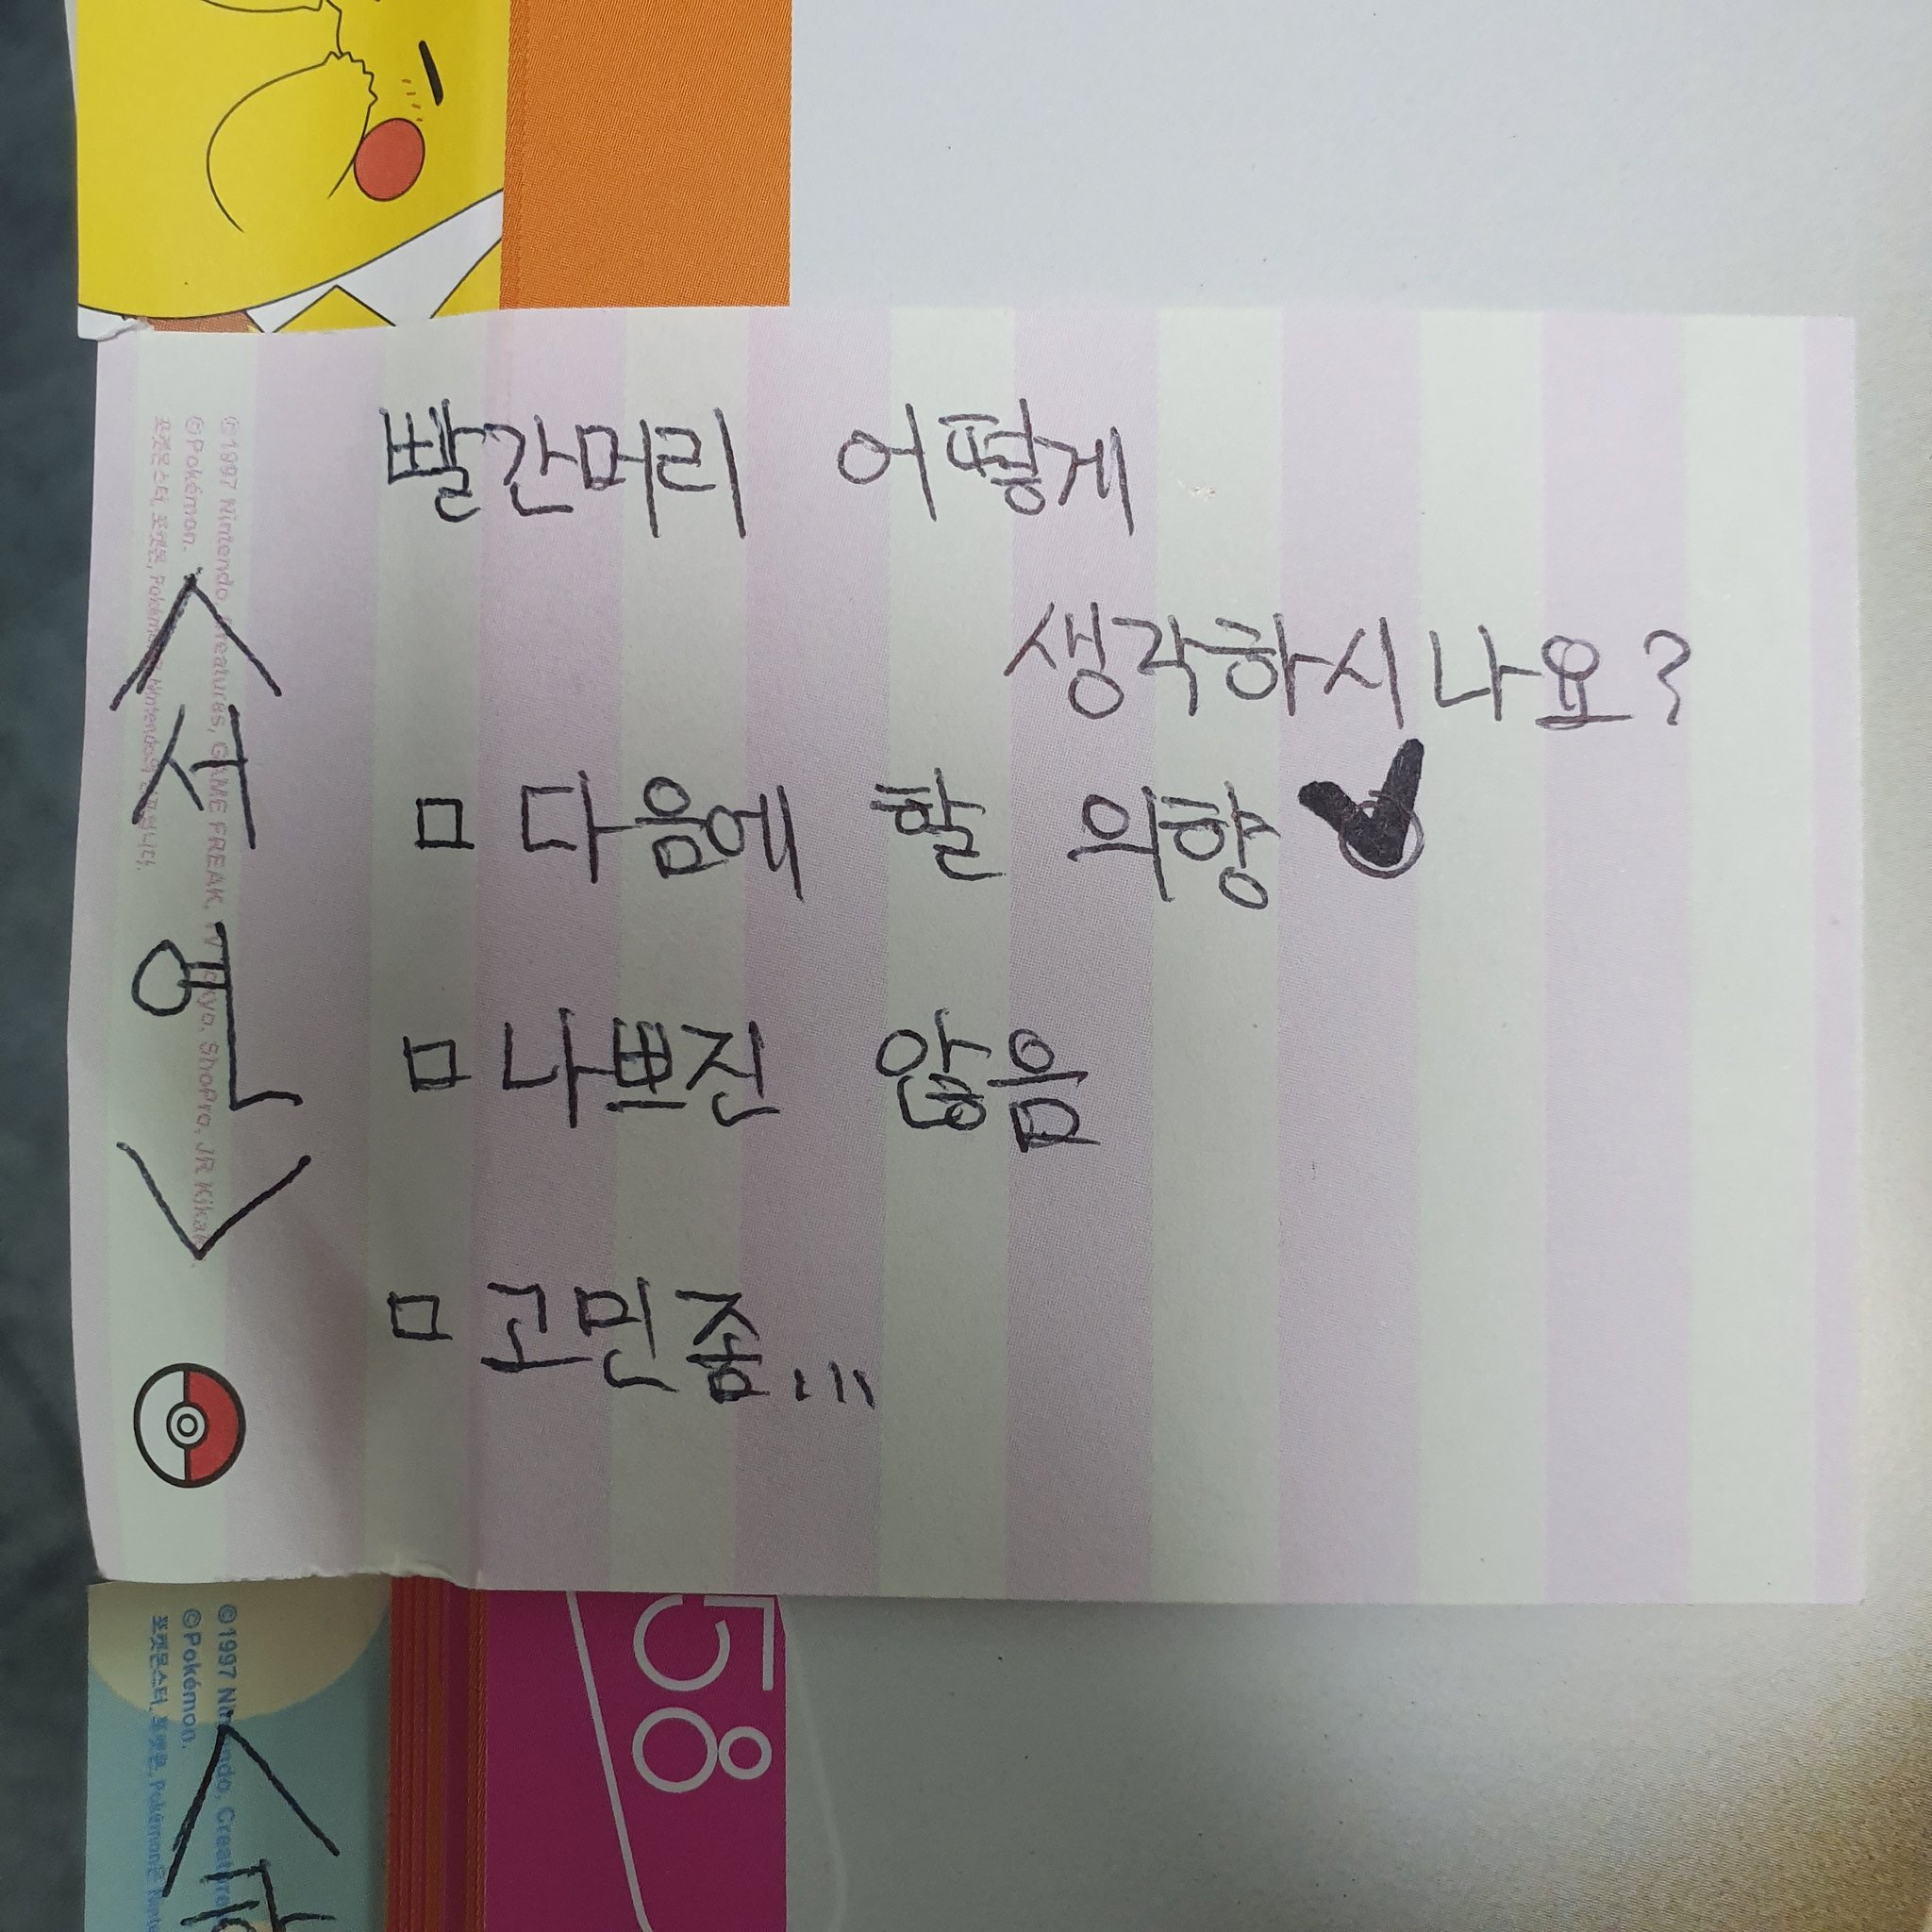 빨간머리 어떻게
생각하시나요?
□ 다음에 할 의향 ✔
□ 나쁘진 않음
□ 고민중...
<선연>
©1997 Nintendo, Creatures, GAME FREAK, TV Tokyo, ShoPro, JR Kikaku.
©Pokémon.
포켓몬스터, 포켓몬, Pokémon은 Nintendo의 상표입니다.
58
©1997 Nintendo, Creature
©Pokémon.
포켓몬스터, 포켓몬, Pokémon은 Ninte